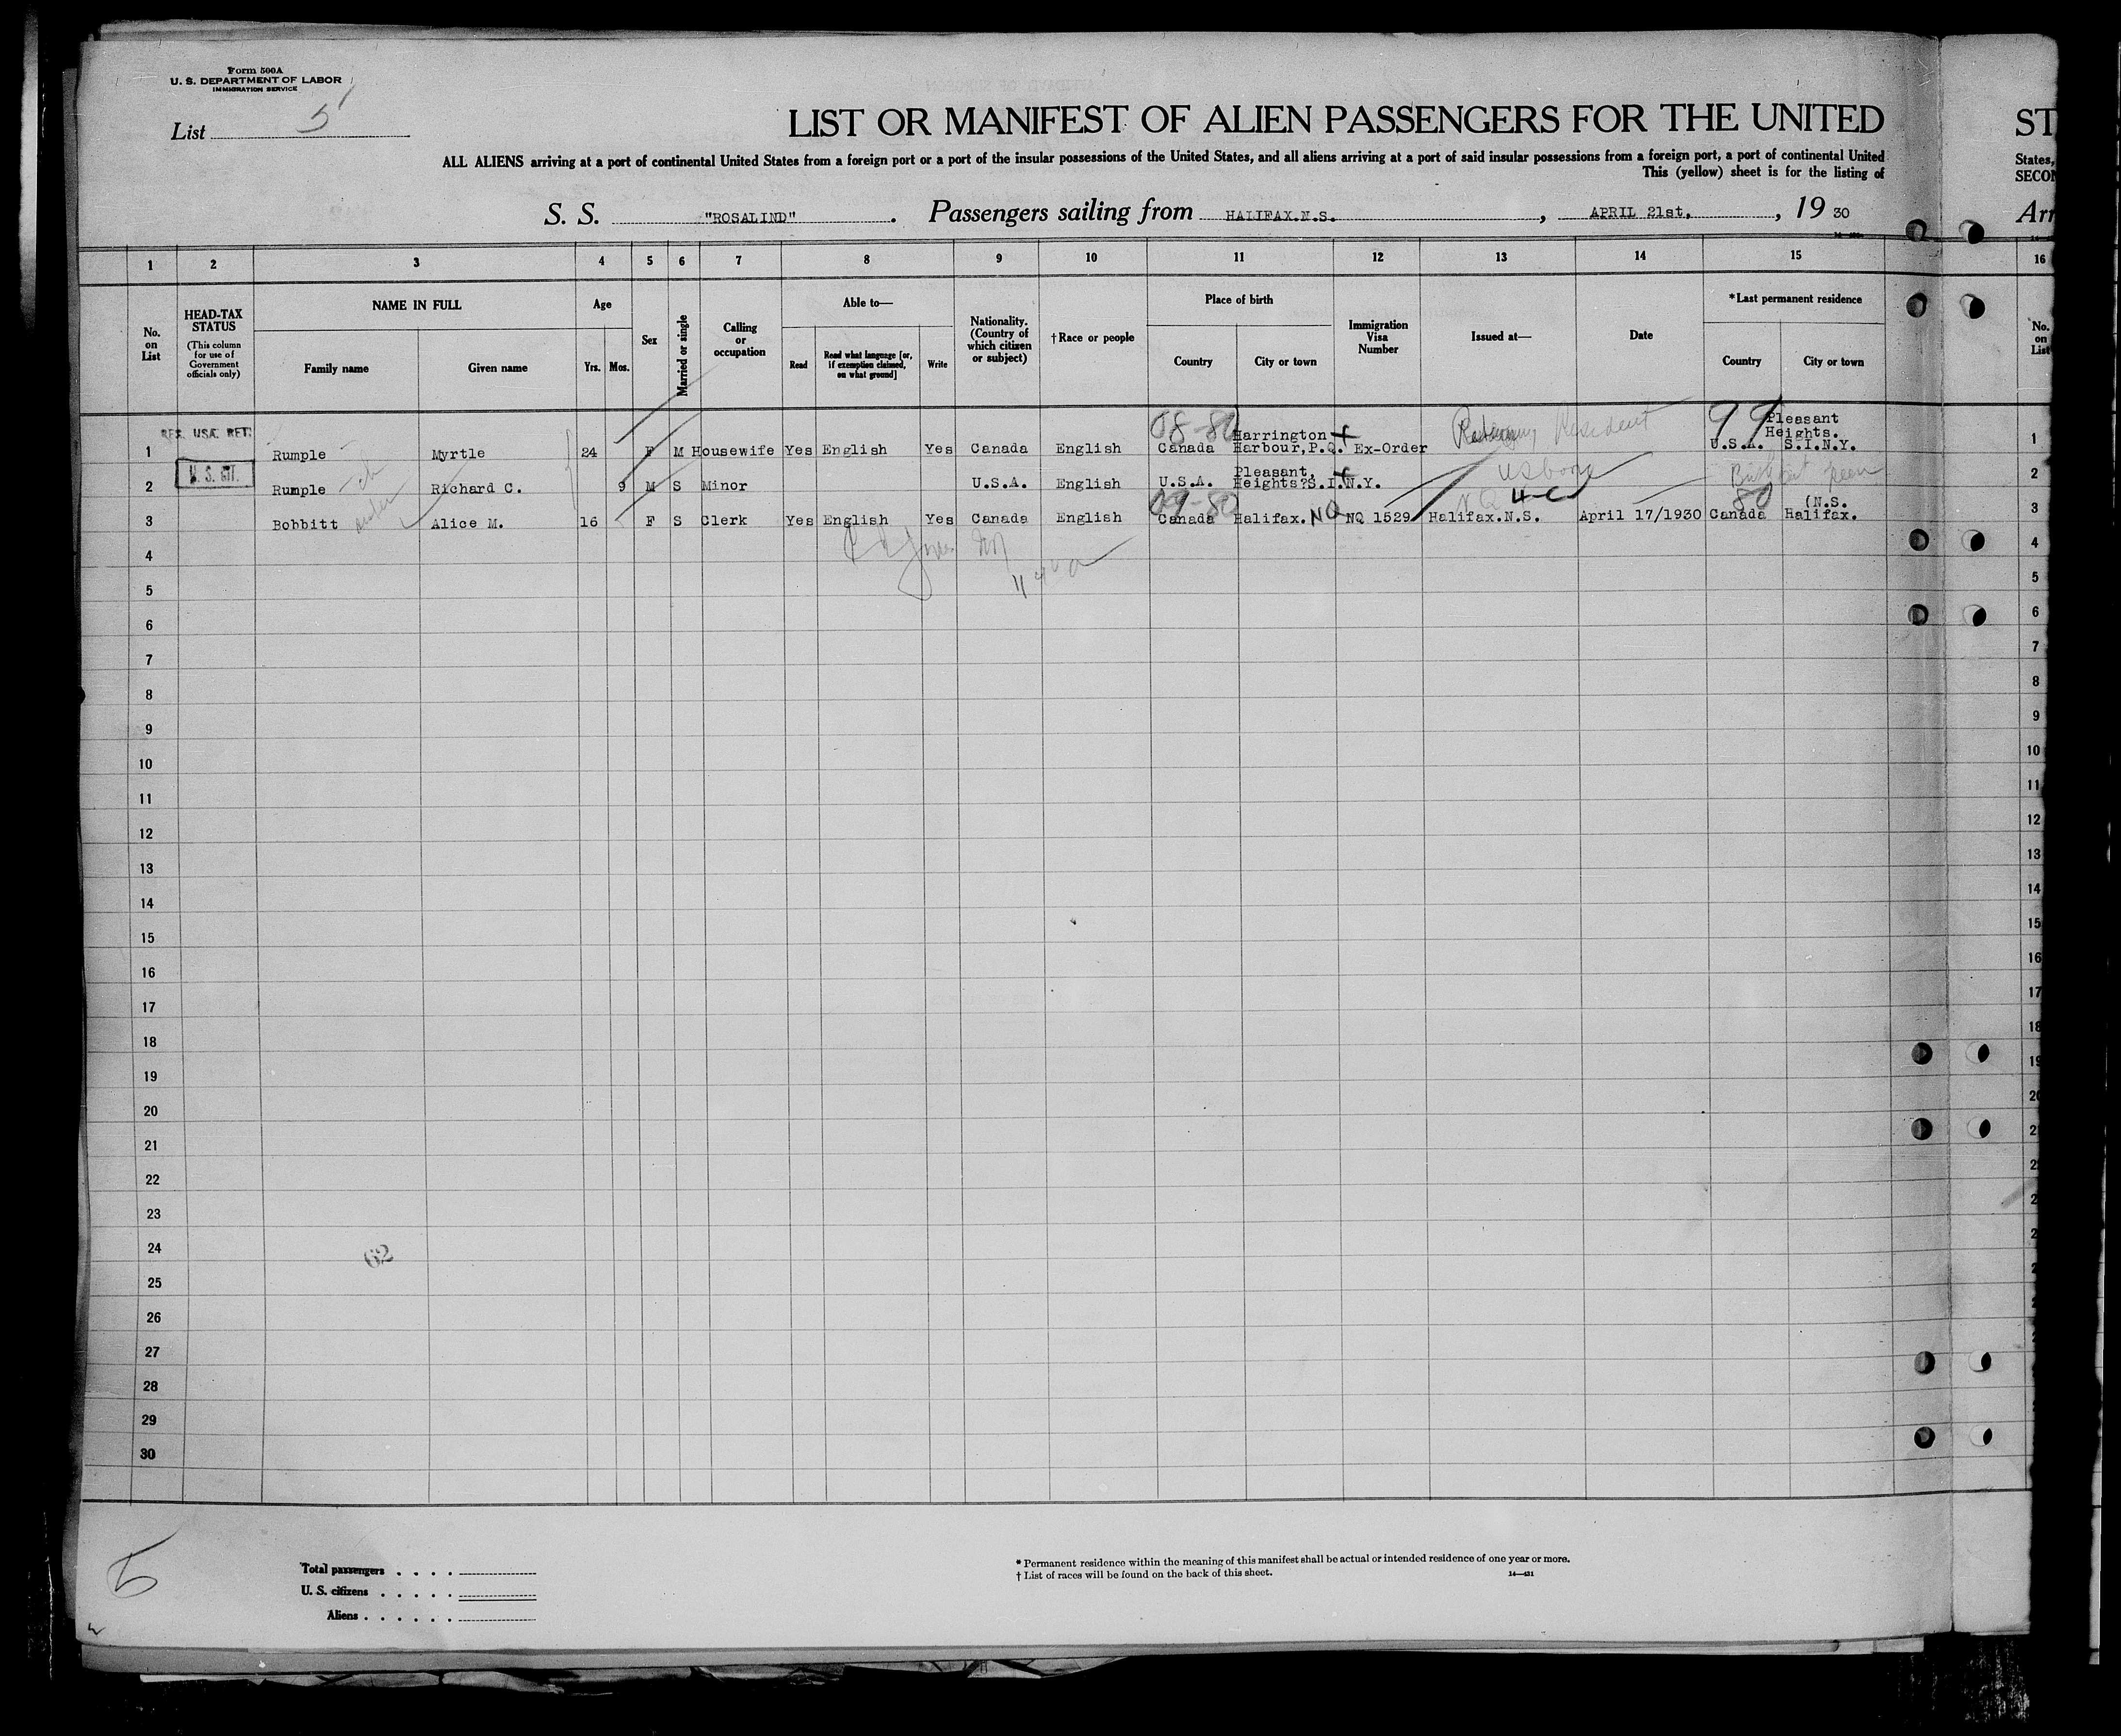 Form 500A
U. S. DEPARTMENT OF LABOR
IMMIGRATION SERVICE
List 5
LIST OR MANIFEST OF ALIEN PASSENGERS FOR THE UNITED
ST
ALL ALIENS arriving at a port of continental United States from a foreign port or a port of the insular possessions of the United States, and all aliens arriving at a port of said insular possessions from a foreign port, a port of continental United
States,
This (yellow) sheet is for the listing of
SECON
S. S. "ROSALIND". Passengers sailing from HALIFAX.N.S., APRIL 21st., 19 30
Arr
1 2 3 4 5 6 7 8 9 10 11 12 13 14 15 16
No. on List
HEAD-TAX STATUS
(This column for use of Government officials only)
NAME IN FULL
Family name Given name
Age
Yrs. Mos.
Sex
Married or single
Calling or occupation
Able to—
Read
Read what language [or, if exemption claimed, on what ground]
Write
Nationality. (Country of which citizen or subject)
†Race or people
Place of birth
Country City or town
Immigration Visa Number
Issued at—
Date
*Last permanent residence
Country City or town
No. on List
1 Rumple Myrtle 24 F M Housewife Yes English Yes Canada English 08-80 Canada Harrington Harbour,P.Q. Ex-Order Returning Resident 99 U.S.A. Pleasant Heights. S.I.N.Y. 1
U. S. CIT.
2 Rumple Richard C. 9 M S Minor U.S.A. English U.S.A. Pleasant, Heights?S.I.N.Y. US born 2
3 Bobbitt Alice M. 16 F S Clerk Yes English Yes Canada English 09-80 Canada Halifax. NQ NQ 1529 Halifax.N.S. April 17/1930 80 Canada (N.S. Halifax. 3
4 4
5 5
6 6
7 7
8 8
9 9
10 10
11 11
12 12
13 13
14 14
15 15
16 16
17 17
18 18
19 19
20 20
21 2
22 2
23 2
24 62 2
25 2
26
27
28
29
30
5
Total passengers
U. S. citizens
Aliens
* Permanent residence within the meaning of this manifest shall be actual or intended residence of one year or more.
† List of races will be found on the back of this sheet.
14—431